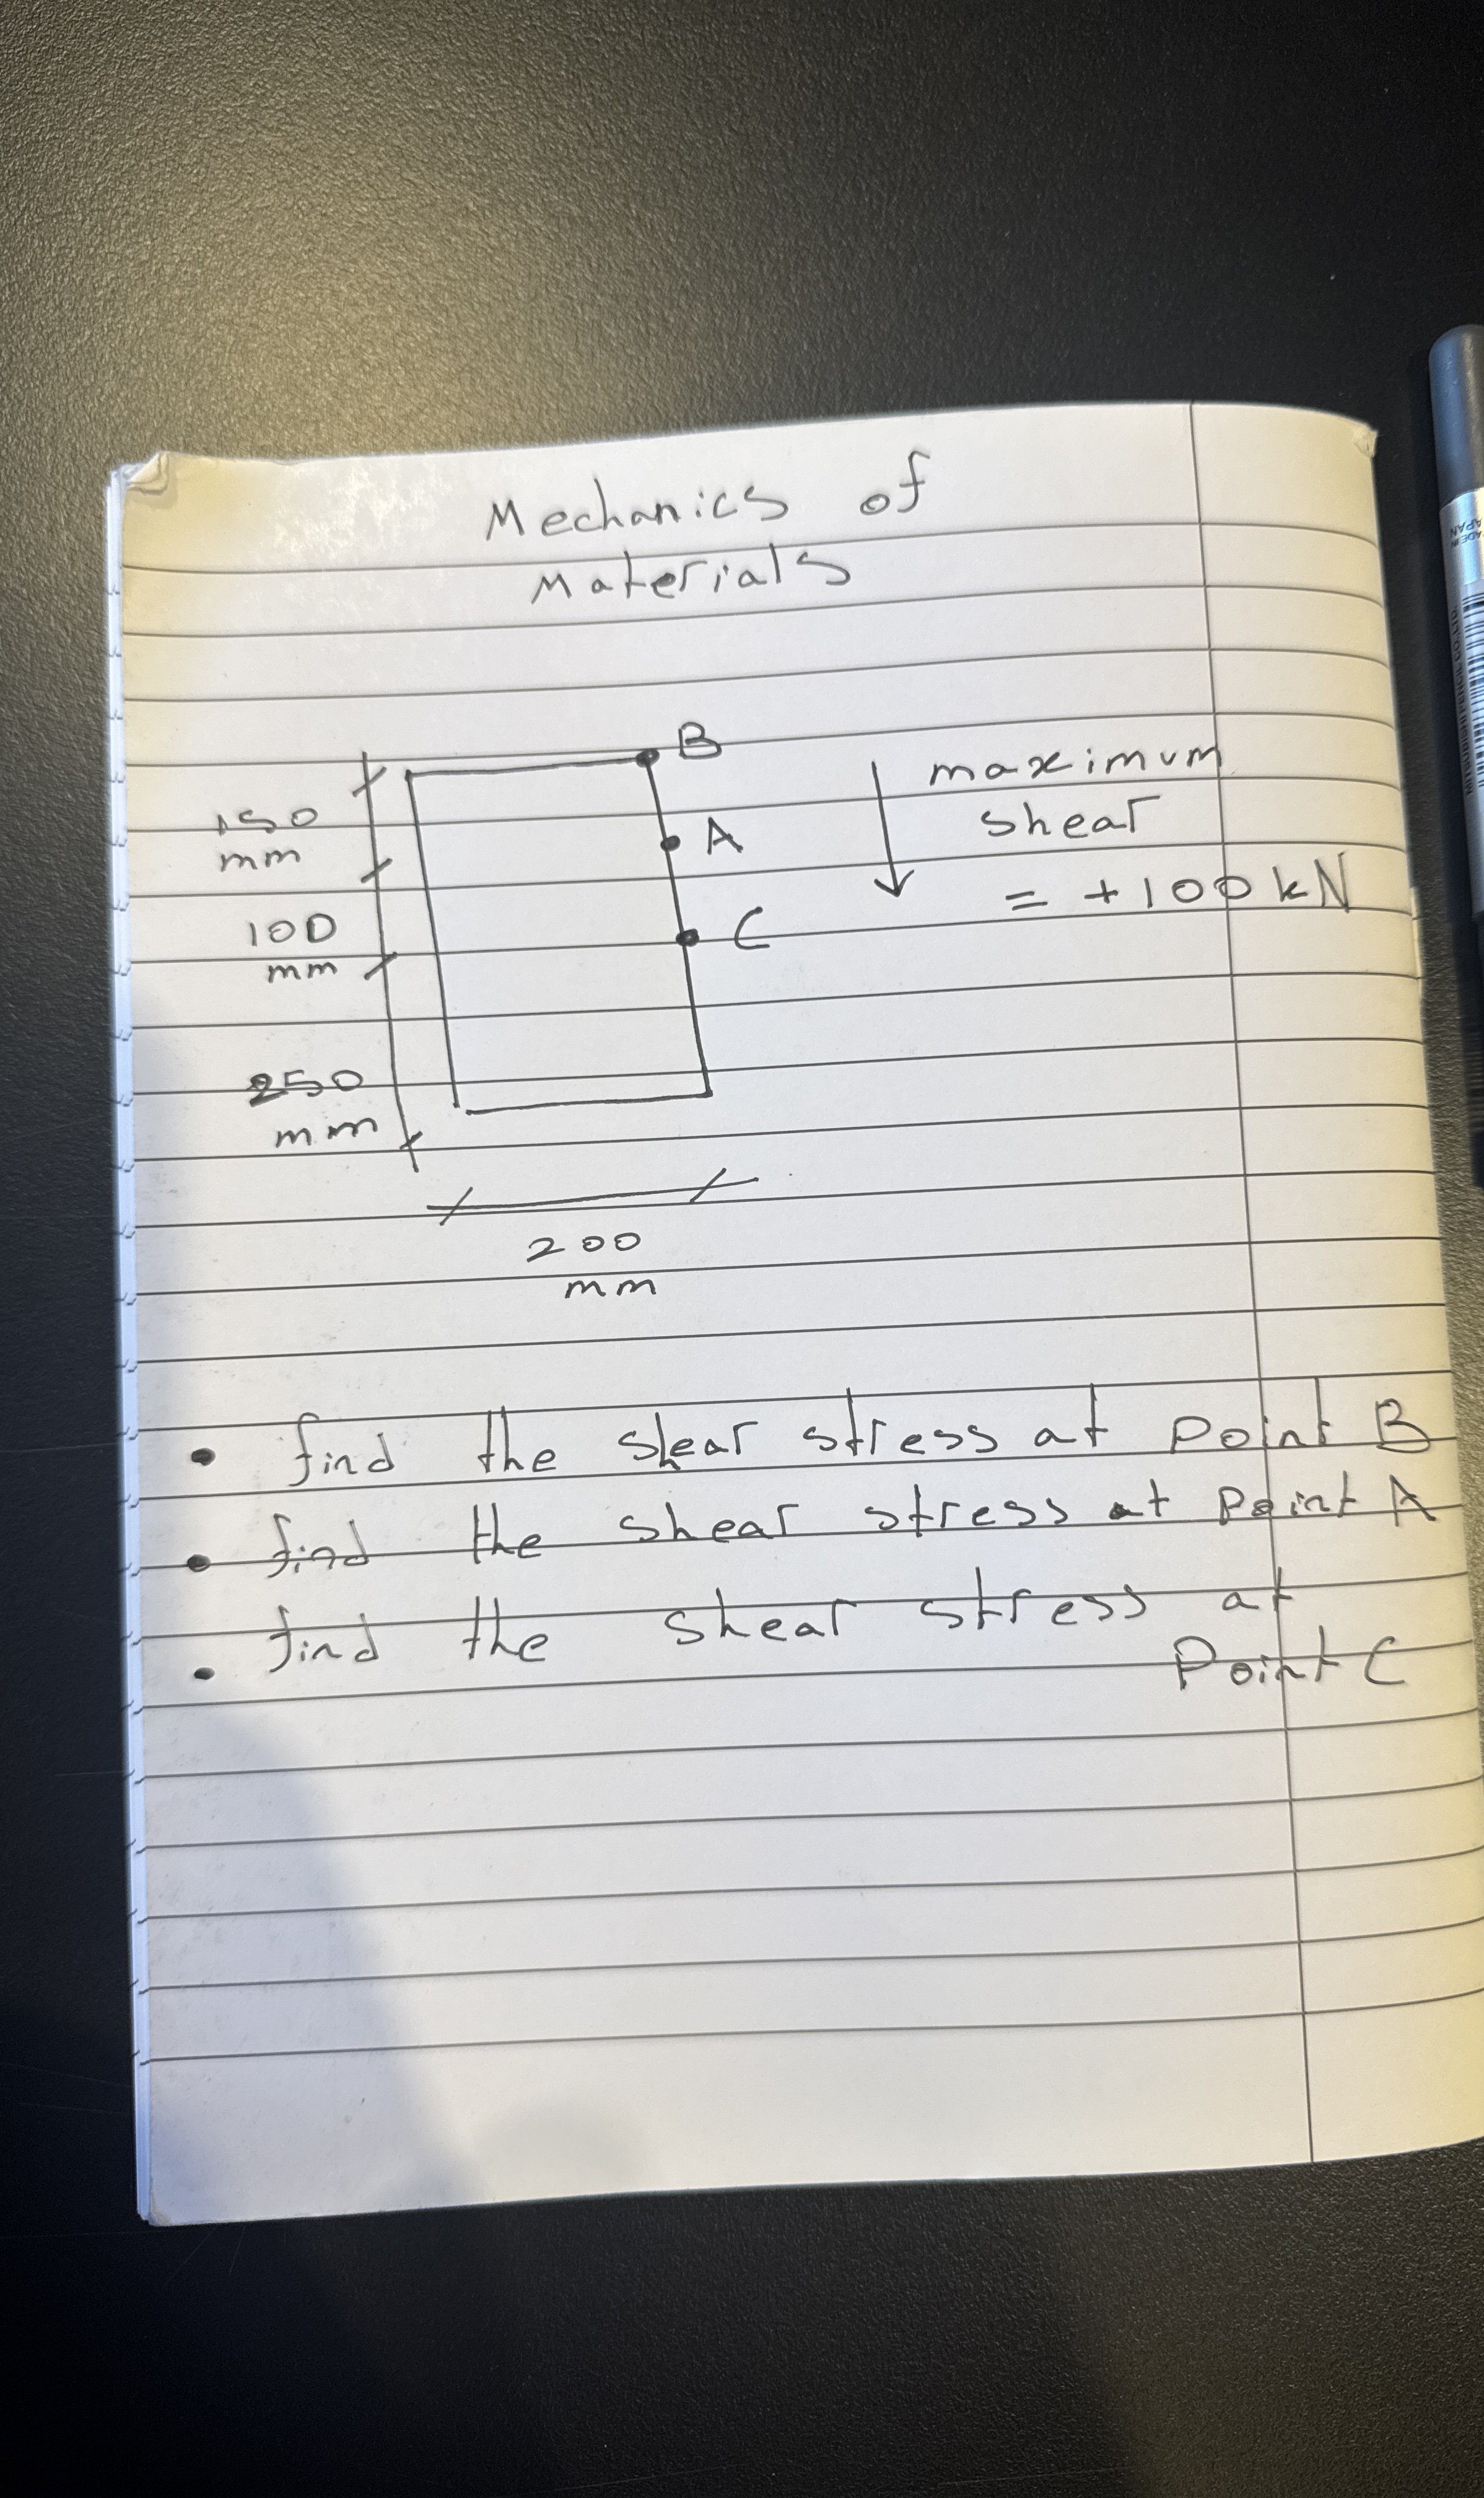 Mechanics of
Materials
B
150
mm
A
maximum
shear
= +100 kN
100
mm
C
250
mm
200
mm
• find the shear stress at point B
• find the shear stress at point A
• find the shear stress at
Point C